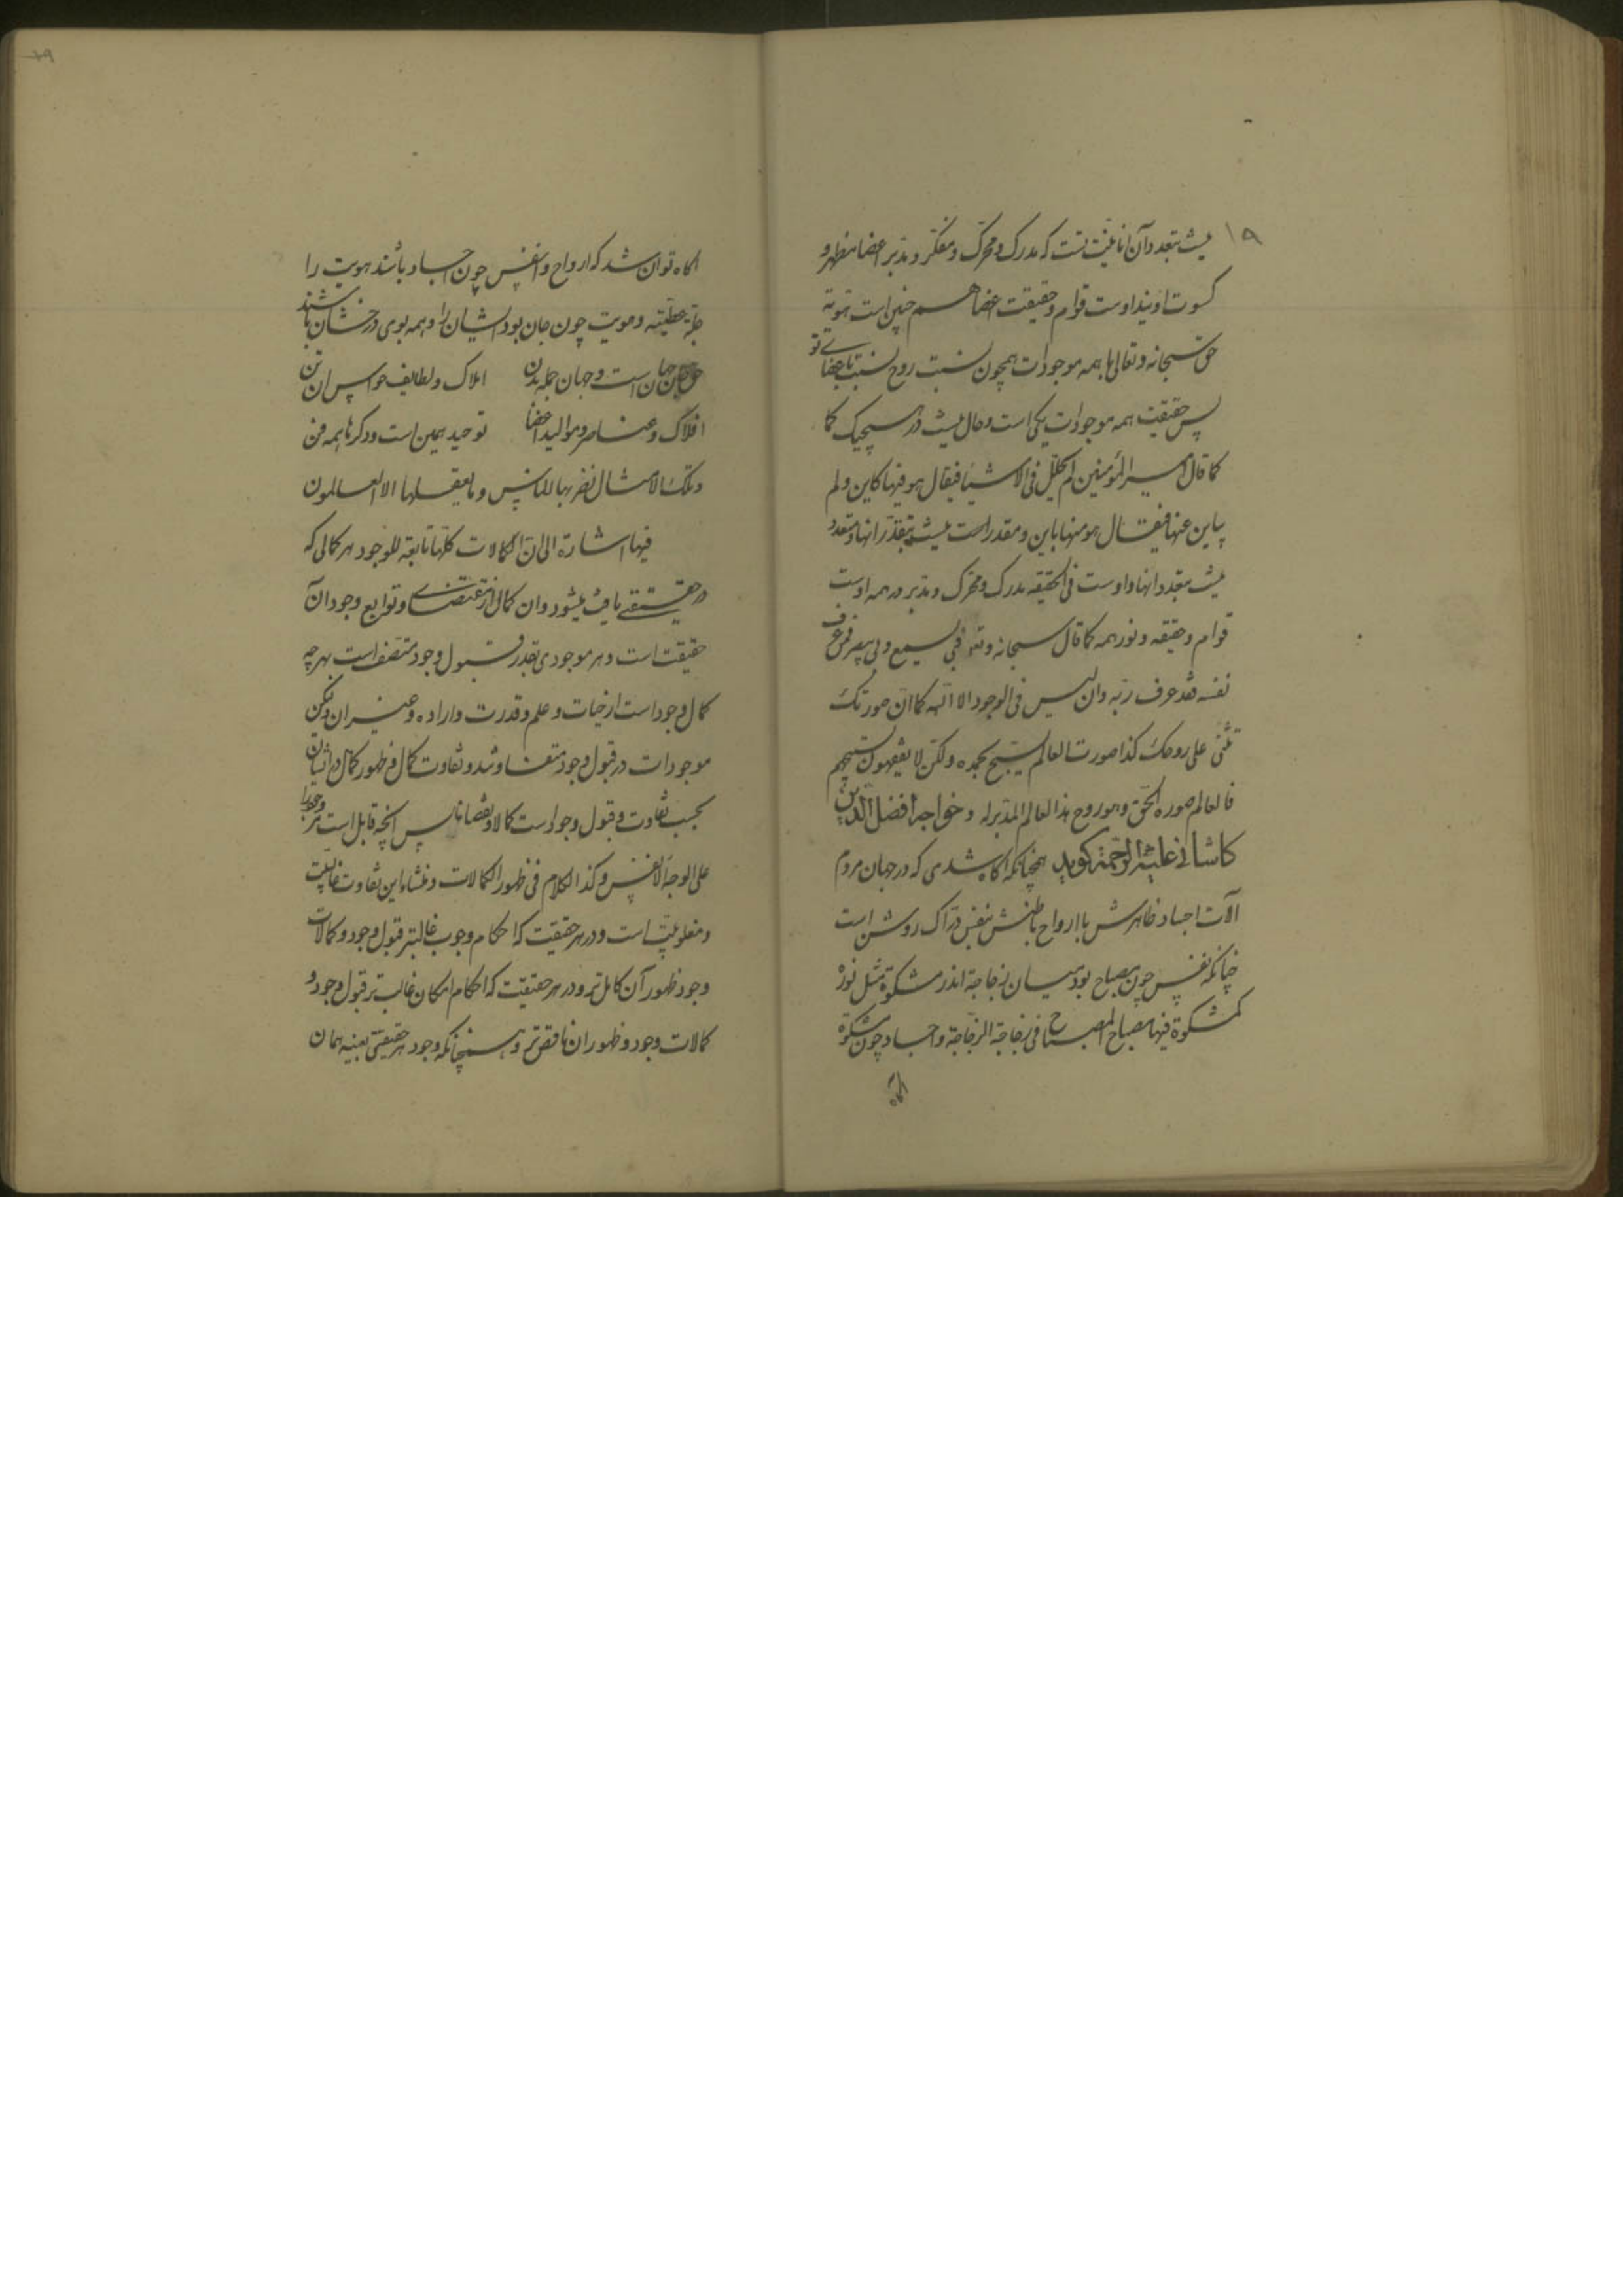 ۱۹
نیست بتعدد آن انانیت تست که مدرک و محرک و مفکر و مدبر اعضا مظهر و
کسوت اویند اوست قوام و حقیقت اعضا هم چنین است هویة
حق سبحانه و تعالی با همه موجودات همچون نسبت روح نسبت باعضای تو
پس حقیقت همه موجودات یکی است و حال نیست در هیچیک کما
کما قال امیر المؤمنین لم یحلل فی الاشیاء فیقال هو فیها کاین و لم
یباین عنها فیقال هو منها باین و مقدر است نیست بتقدر انها و متعدد
نیست بتعدد انها و اوست فی الحقیقه مدرک و محرک و مدبر در همه اوست
قوام و حقیقه و نور همه کما قال سبحانه و تعو فبی یسمع و بی یبصر فمن عرف
نفسه فقد عرف ربه و ان لیس فی الوجود الا الله کما ان صورتک
تثنی علی روحک کذا صورت العالم یسبح بحمده و لکن لا یفقهون تسبیحهم
فالعالم صورة الحق و هو روح هذا العالم المدبر له و خواجه افضل الدین
کاشانی علیه الرحمة گوید همچنانکه آگاه شدی که در جهان مردم
آلات اجساد ظاهرش با ارواح باطنش بنفس دراک روشن است
چنانکه نفس چون مصباح بود میان زجاجة اندر مشکوة مثل نوره
کمشکوة فیها مصباح المصباح فی زجاجة الزجاجة و اجساد چون مشکوة
آگاه
آگاه توان شد که ارواح و انفس چون اجساد باشند هویت را
و هویت چون جان بود ایشان را و همه بوی درخشان باشند
حق جان جهان است و جهان جمله بدن املاک و لطایف حواس ان تن
افلاک و عناصر و موالید اعضا توحید همین است و دگرها همه فن
و تلک الامثال نضربها للناس و ما یعقلها الا العالمون
فیها اشارة الی ان الکمالات کلها تابعة للوجود هر کمالی که
در حقیقتی یافت میشود و ان کمال از مقتضای و توابع وجود آن
حقیقت است و هر موجودی بقدر قبول وجود متصف است بهرچه
کمال وجود است از حیات و علم و قدرت و اراده و غیر ان و لیکن
موجودات در قبول وجود متفاوتند و تفاوت کمال و ظهور کمال در ایشان
بحسب تفاوت و قبول وجود است کمالا و نقصانا پس آنچه قابل است مر وجود را
علی الوجه الانقص و کذا الکلام فی ظهور الکمالات و منشاء این تفاوت غالبیت
و مغلوبیت است و در هر حقیقت که احکام وجوب غالبتر قبول وجود و کمالات
وجود ظهور آن کامل تر و در هر حقیقت که احکام امکان غالب تر قبول وجود و
کمالات وجود و ظهور ان ناقص تر و همچنانکه وجود هر حقیقتی بعینه همان